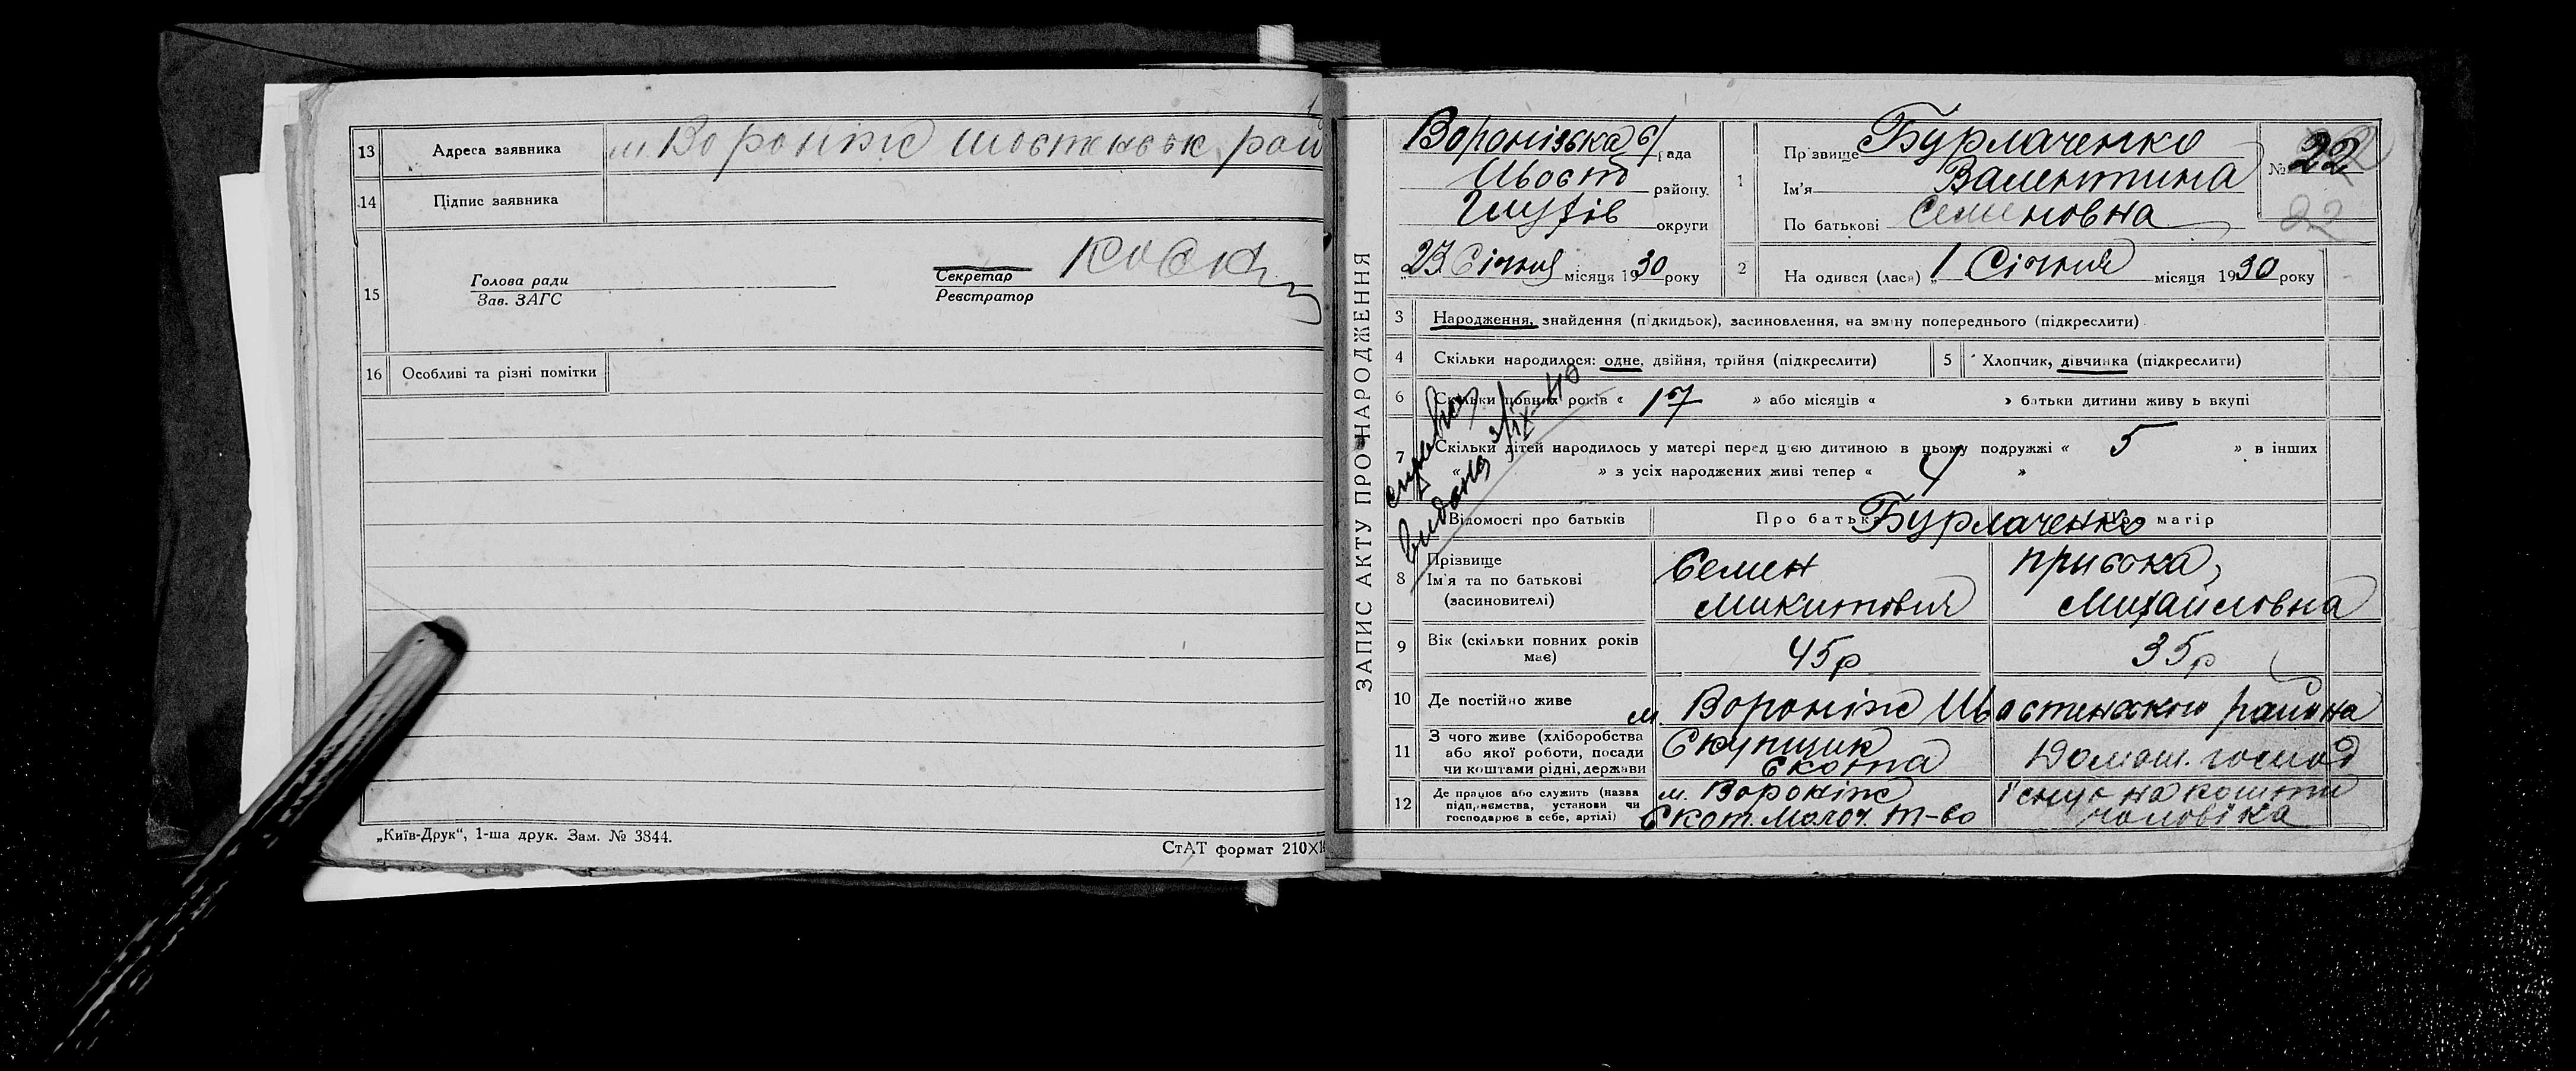 13 Адреса заявника м. Вороніж Шостенськ рай
14 Підпис заявника
15 Голова ради
Зав. ЗАГС
Секретар
Реєстратор
16 Особливі та різні помітки
„Київ-Друк“, 1-ша друк. Зам. № 3844.
СтАТ формат 210×1
ЗАПИС АКТУ ПРО НАРОДЖЕННЯ
Воронізька с/рада
Шост району.
Глухів округи
23 Січня місяця 1930 року
1 Прізвище Бурлаченко
Ім'я Валентина
По батькові Семеновна
№ 22
22
2 На одився (лася) „1 Січня місяця 1930 року
3 Народження, знайдення (підкидьок), засиновлення, на зміну попереднього (підкреслити)
4 Скільки народилося: одне, двійня, трійня (підкреслити)
5 Хлопчик, дівчинка (підкреслити)
6 Скільки повних років « 17 » або місяців « » батьки дитини живу ь вкупі
7 Скільки дітей народилось у матері перед цією дитиною в цьому подружжі « 5 » в інших
« » з усіх народжених живі тепер « 4 »
видана 3/IX-40
Відомості про батьків Про батька Про матір
Бурлаченко
8 Прізвище
Ім'я та по батькові
(засиновителі)
Семен
Микитович
Приська
Михайловна
9 Вік (скільки повних років має) 45р 35р
10 Де постійно живе м. Вороніж Шостенського района
11 З чого живе (хліборобства
або якої роботи, посади
чи коштами рідні, держави
Скупщик
Скота
Домаш. господ
12 Де працює або служить (назва
підприємства, установи чи
господарює в себе, артілі)
м. Вороніж
Скот. молоч. т-во
Існує на кошти
чоловіка